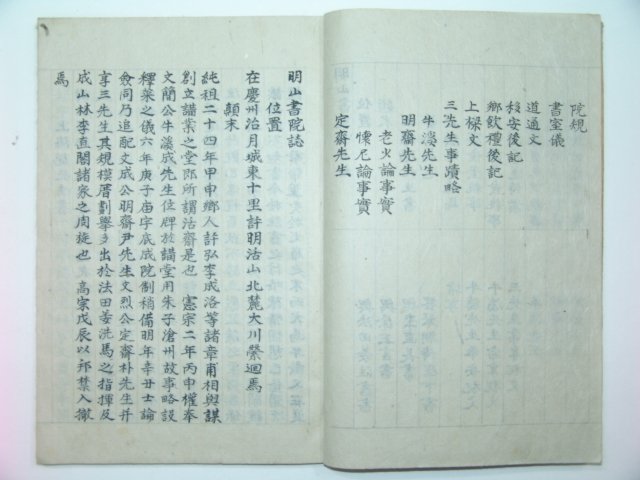 院規
書室儀
道通文
移安後記
鄕飮禮後記
上樑文
三先生事蹟略
牛溪先生
明齋先生
老少論事實
懷尼論事實
定齋先生
明山書院誌
位置
在慶州治月城東十里許明活山北麓大川縈迴焉
顛末
純祖二十四年甲申鄉人許弘李成洛等諸章甫相與謀
創立講業之堂卽所謂活齋是也 憲宗二年丙申權奉
文簡公牛溪成先生位牌於講堂用朱子滄州故事略設
釋菜之儀六年庚子庙宇底成院制稍備明年辛丑士論
僉同乃追配文成公明齋尹先生文烈公定齋朴先生幷
享三先生其規模厝劃擧多出於法田姜洗馬之指揮及
成山林李直閣諸家之周旋也 高宗戊辰以邦禁入撤
焉